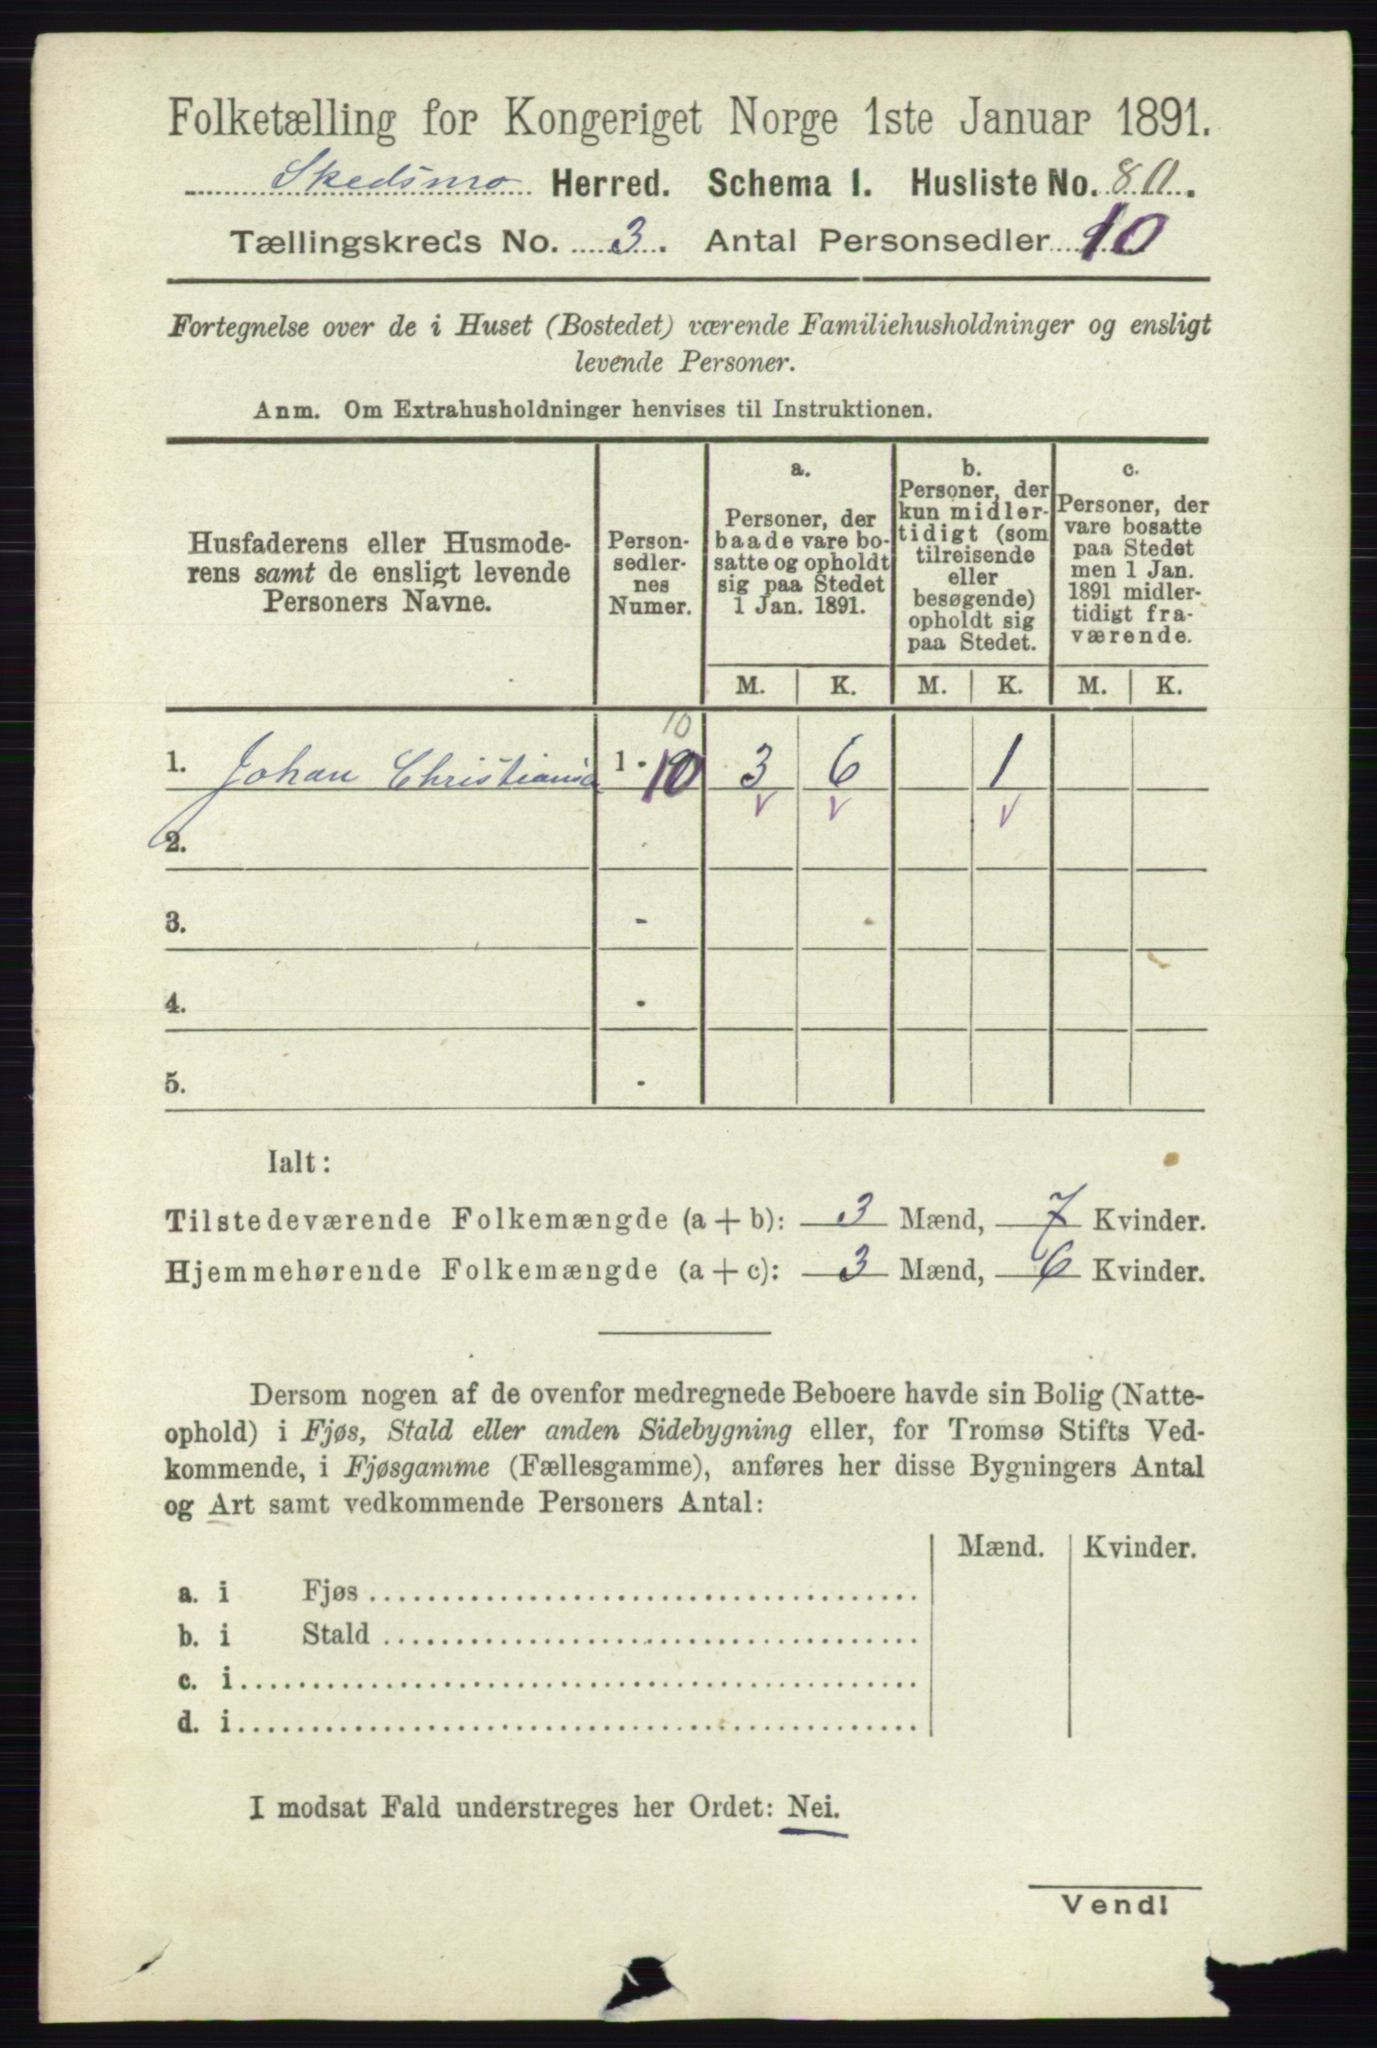 Folketælling for Kongeriget Norge 1ste Januar 1891.
Skedsmo Herred. Schema I. Husliste No. 80.
Tællingskreds No. 3. Antal Personsedler 10
Fortegnelse over de i Huset (Bostedet) værende Familiehusholdninger og ensligt
levende Personer.
Anm. Om Extrahusholdninger henvises til Instruktionen.
Husfaderens eller Husmode-
rens samt de ensligt levende
Personers Navne.
Person-
sedler-
nes
Numer.
a.
Personer, der
baade vare bo-
satte og opholdt
sig paa Stedet
1 Jan. 1891.
b.
Personer, der
kun midler-
tidigt (som
tilreisende
eller
besøgende)
opholdt sig
paa Stedet.
c.
Personer, der
vare bosatte
paa Stedet
men 1 Jan.
1891 midler-
tidigt fra-
værende.
M. K. M. K. M. K.
10
1. Johan 1 - 10 3 6 1
2.
3. -
4. -
5. -
Ialt:
Tilstedeværende Folkemængde (a + b): 3 Mænd, 7 Kvinder.
Hjemmehørende Folkemængde (a + c): 3 Mænd, 6 Kvinder.
Dersom nogen af de ovenfor medregnede Beboere havde sin Bolig (Natte-
ophold) i Fjøs, Stald eller anden Sidebygning eller, for Tromsø Stifts Ved-
kommende, i Fjøsgamme (Fællesgamme), anføres her disse Bygningers Antal
og Art samt vedkommende Personers Antal:
Mænd. Kvinder.
a. i Fjøs
b. i Stald
c. i
d. i
I modsat Fald understreges her Ordet: Nei.
Vend!